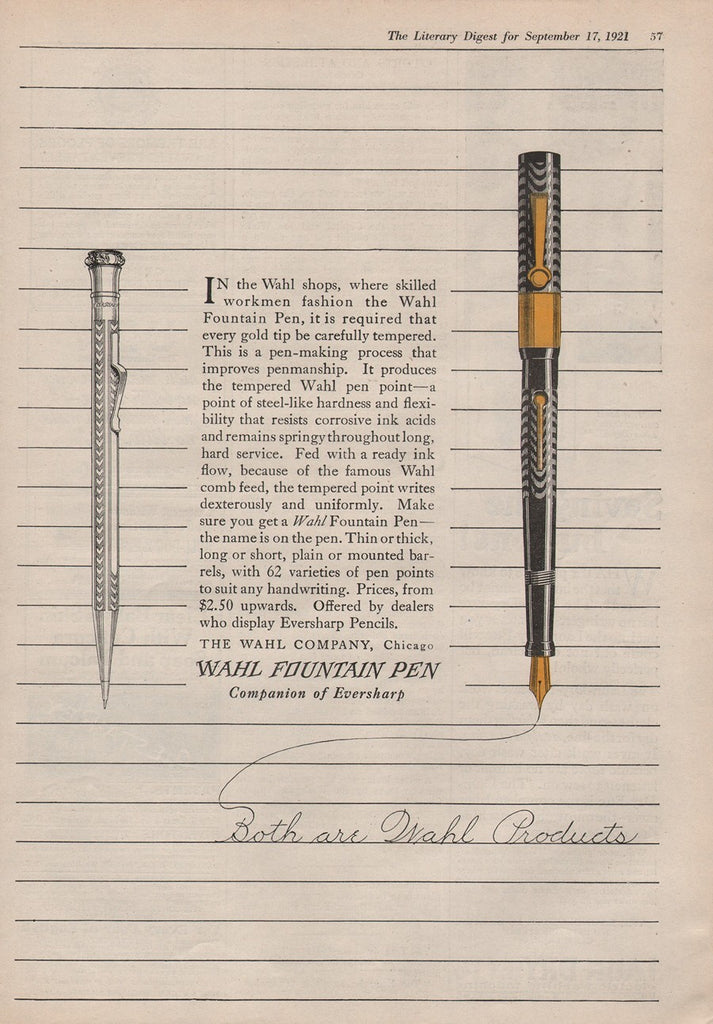 The Literary Digest for September 17, 1921 57
IN the Wahl shops, where skilled
workmen fashion the Wahl
Fountain Pen, it is required that
every gold tip be carefully tempered.
This is a pen-making process that
improves penmanship. It produces
the tempered Wahl pen point—a
point of steel-like hardness and flexi-
bility that resists corrosive ink acids
and remains springy throughout long,
hard service. Fed with a ready ink
flow, because of the famous Wahl
comb feed, the tempered point writes
dexterously and uniformly. Make
sure you get a Wahl Fountain Pen—
the name is on the pen. Thin or thick,
long or short, plain or mounted bar-
rels, with 62 varieties of pen points
to suit any handwriting. Prices, from
$2.50 upwards. Offered by dealers
who display Eversharp Pencils.
THE WAHL COMPANY, Chicago
WAHL FOUNTAIN PEN
Companion of Eversharp
Both are Wahl Products